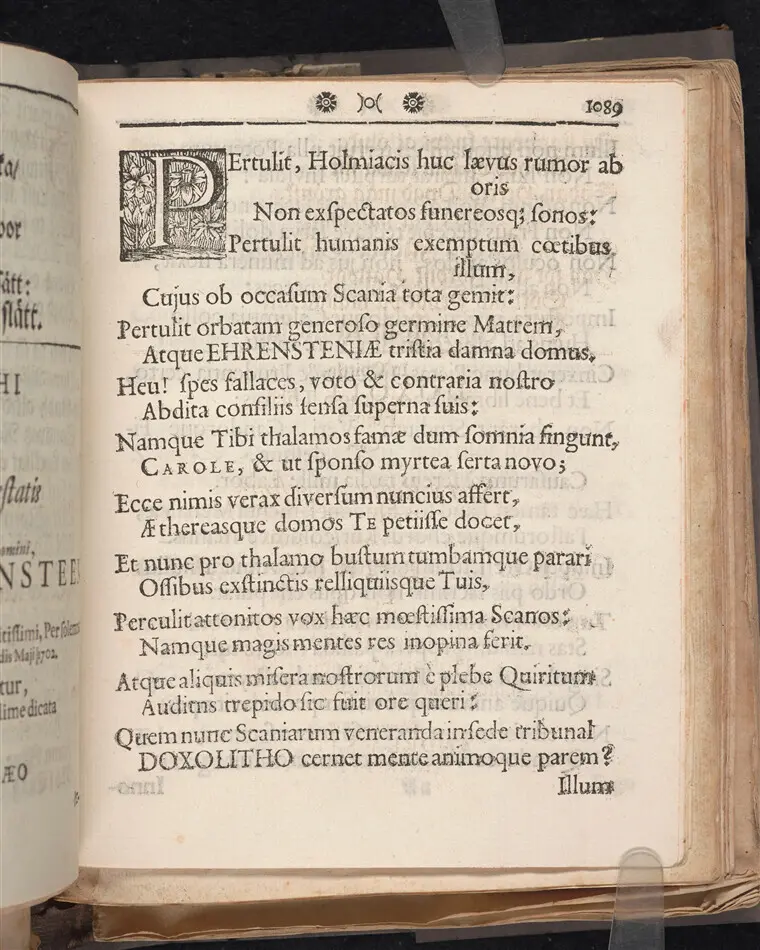 1089
PErtulit, Holmiacis huc lævus rumor ab
oris
Non exſpectatos funereosq; ſonos:
Pertulit humanis exemptum cœtibus
illum,
Cujus ob occaſum Scania tota gemit:
Pertulit orbatam generoſo germine Matrem,
Atque EHRENSTENIÆ triſtia damna domus.
Heu! ſpes fallaces, voto & contraria noſtro
Abdita conſiliis ſenſa ſuperna ſuis:
Namque Tibi thalamos famæ dum ſomnia fingunt,
CAROLE, & ut ſponſo myrtea ſerta novo;
Ecce nimis verax diverſum nuncius affert,
Æthereasque domos TE petiiſſe docet,
Et nunc pro thalamo buſtum tumbamque parari
Oſſibus exſtinctis relliquiisque Tuis,
Perculit attonitos vox hæc mœſtiſſima Scanos:
Namque magis mentes res inopina ferit.
Atque aliquis miſera noſtrorum è plebe Quiritum
Auditus trepido ſic fuit ore queri:
Quem nunc Scaniarum veneranda in ſede tribunal
DOXOLITHO cernet mente animoque parem?
Illum
ka/
por
ſått:
ſtått.
HI
ſtatis
NSTEE
itiſſimi, Per
diis Maji 1702.
tur,
lime dicata
ÆO